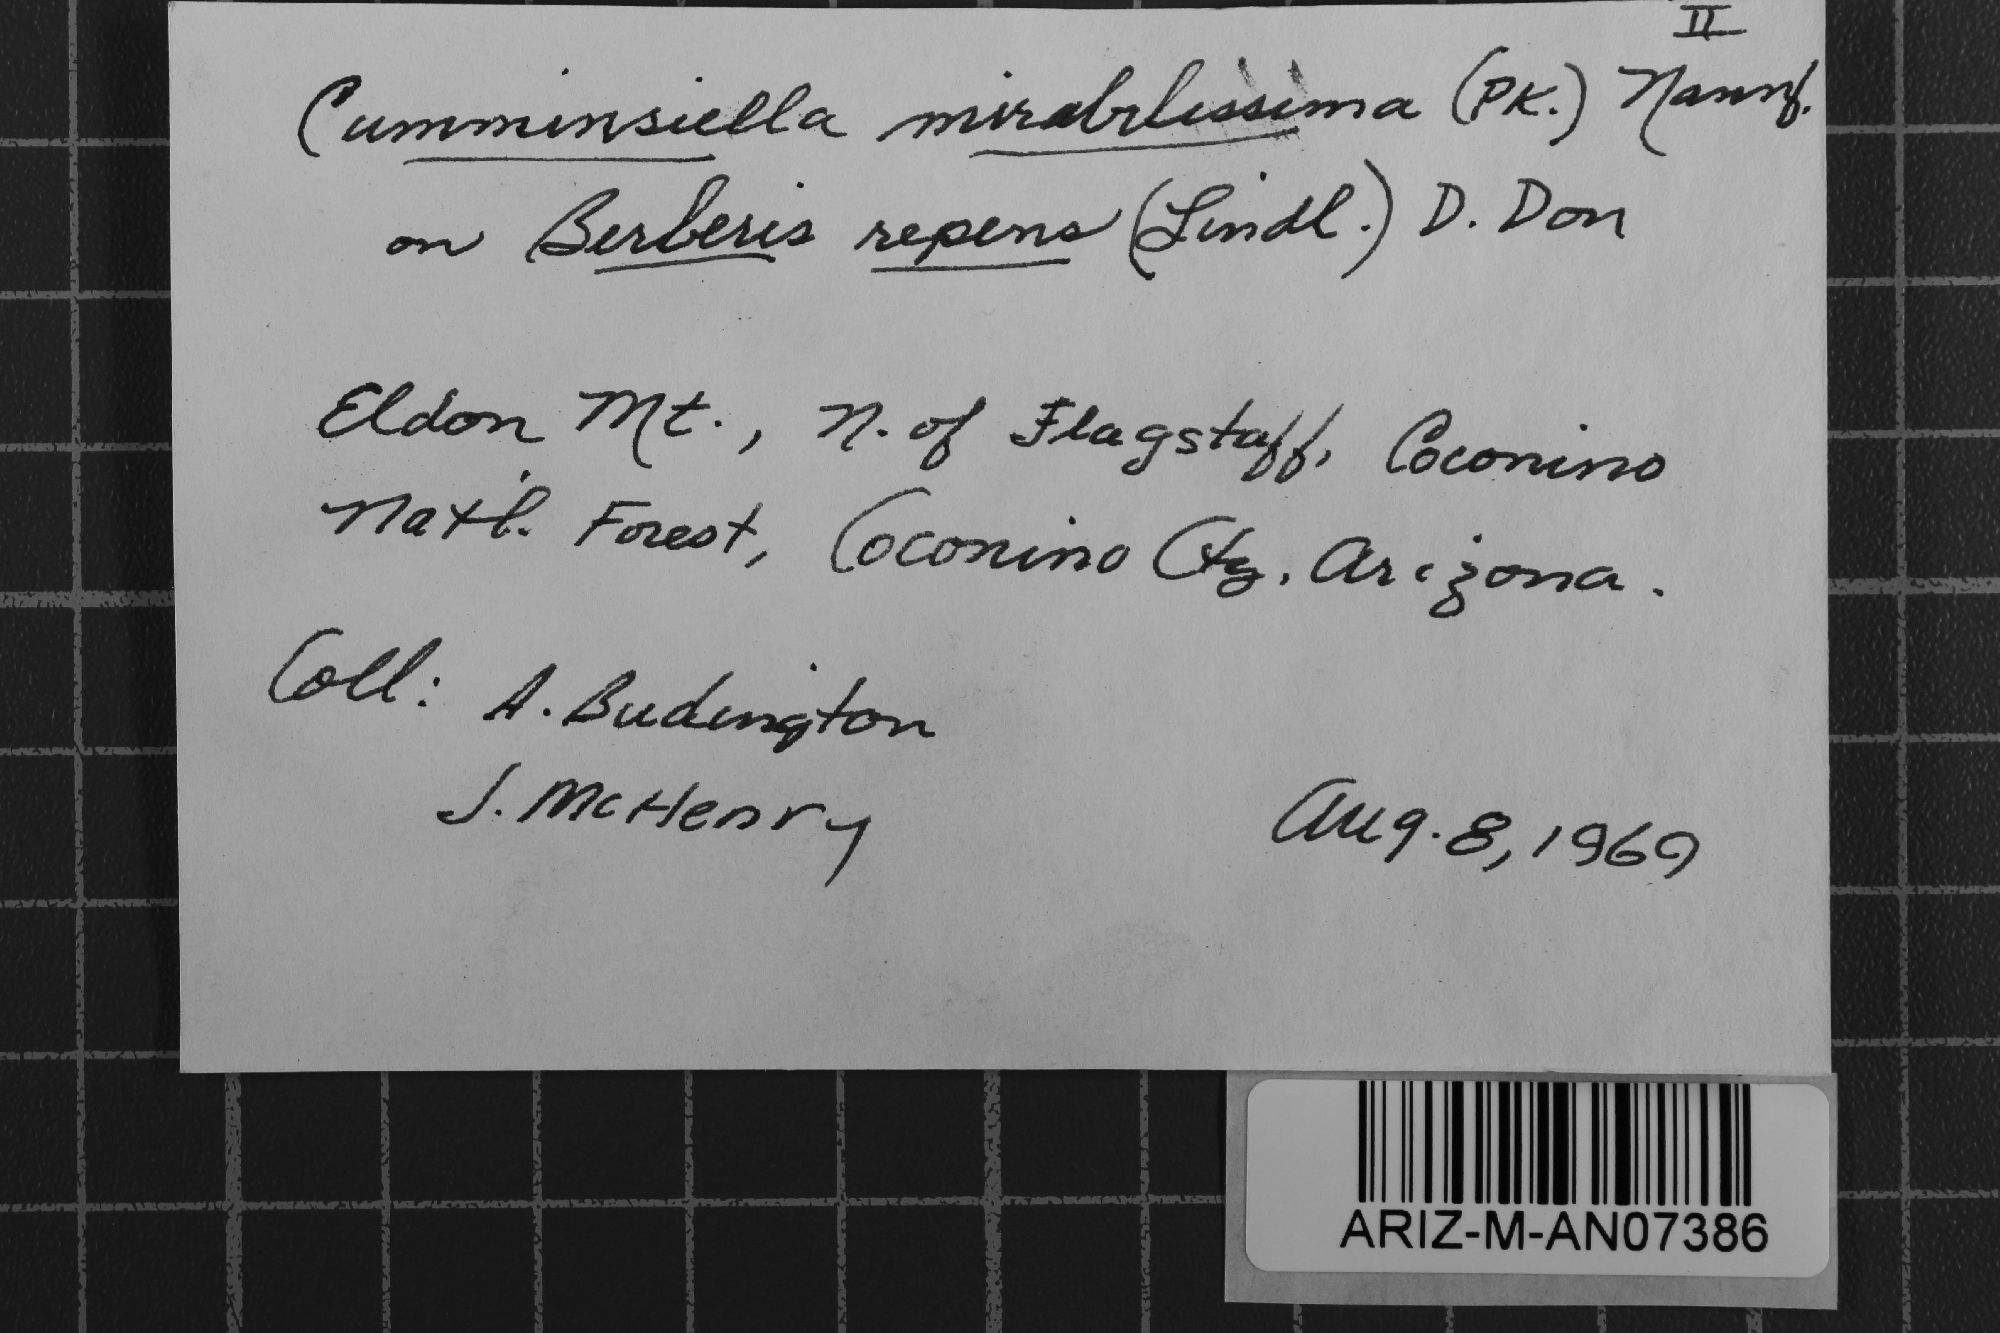 II
Cumminsiella mirabilissima (PK.) Nannf.
on Berberis repens (Lindl.) D. Don
Eldon Mt., N. of Flagstaff, Coconino
Nat'l. Forest, Coconino Cty. Arizona.
Coll: A. Budington
J. McHenry
Aug. 8, 1969
ARIZ-M-AN07386